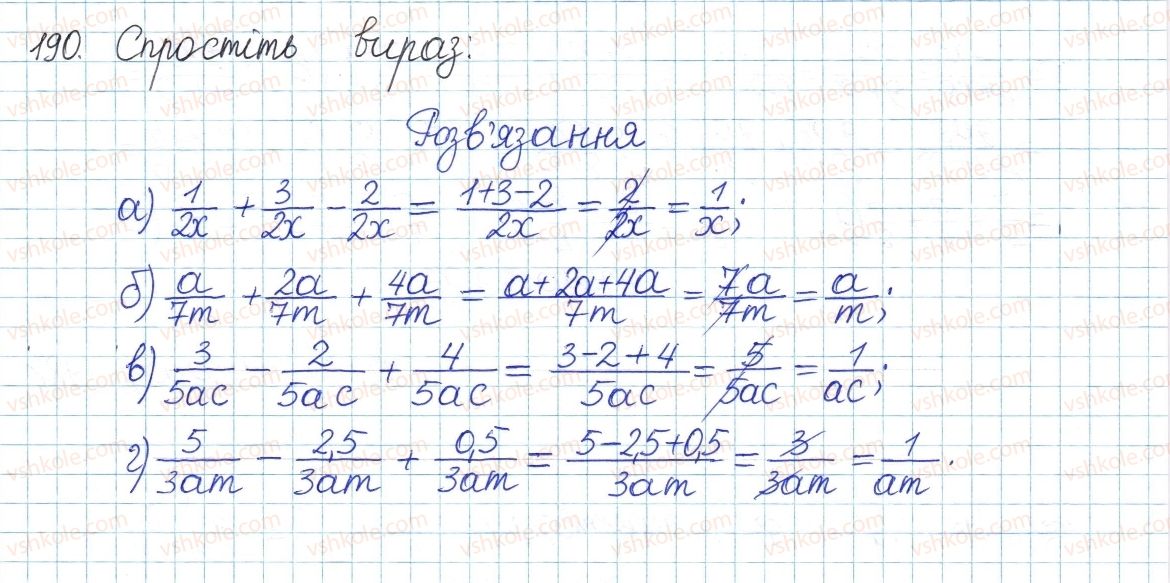 190. Спростіть вираз:
Розв'язання
а) 1/2x + 3/2x - 2/2x = 1+3-2/2x = 2/2x = 1/x;
б) a/7m + 2a/7m + 4a/7m = a+2a+4a/7m = 7a/7m = a/m;
в) 3/5ac - 2/5ac + 4/5ac = 3-2+4/5ac = 5/5ac = 1/ac;
г) 5/3am - 2,5/3am + 0,5/3am = 5-2,5+0,5/3am = 3/3am = 1/am.